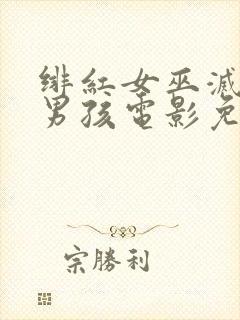 緋紅女巫滅
男孩電影免
宗勝利